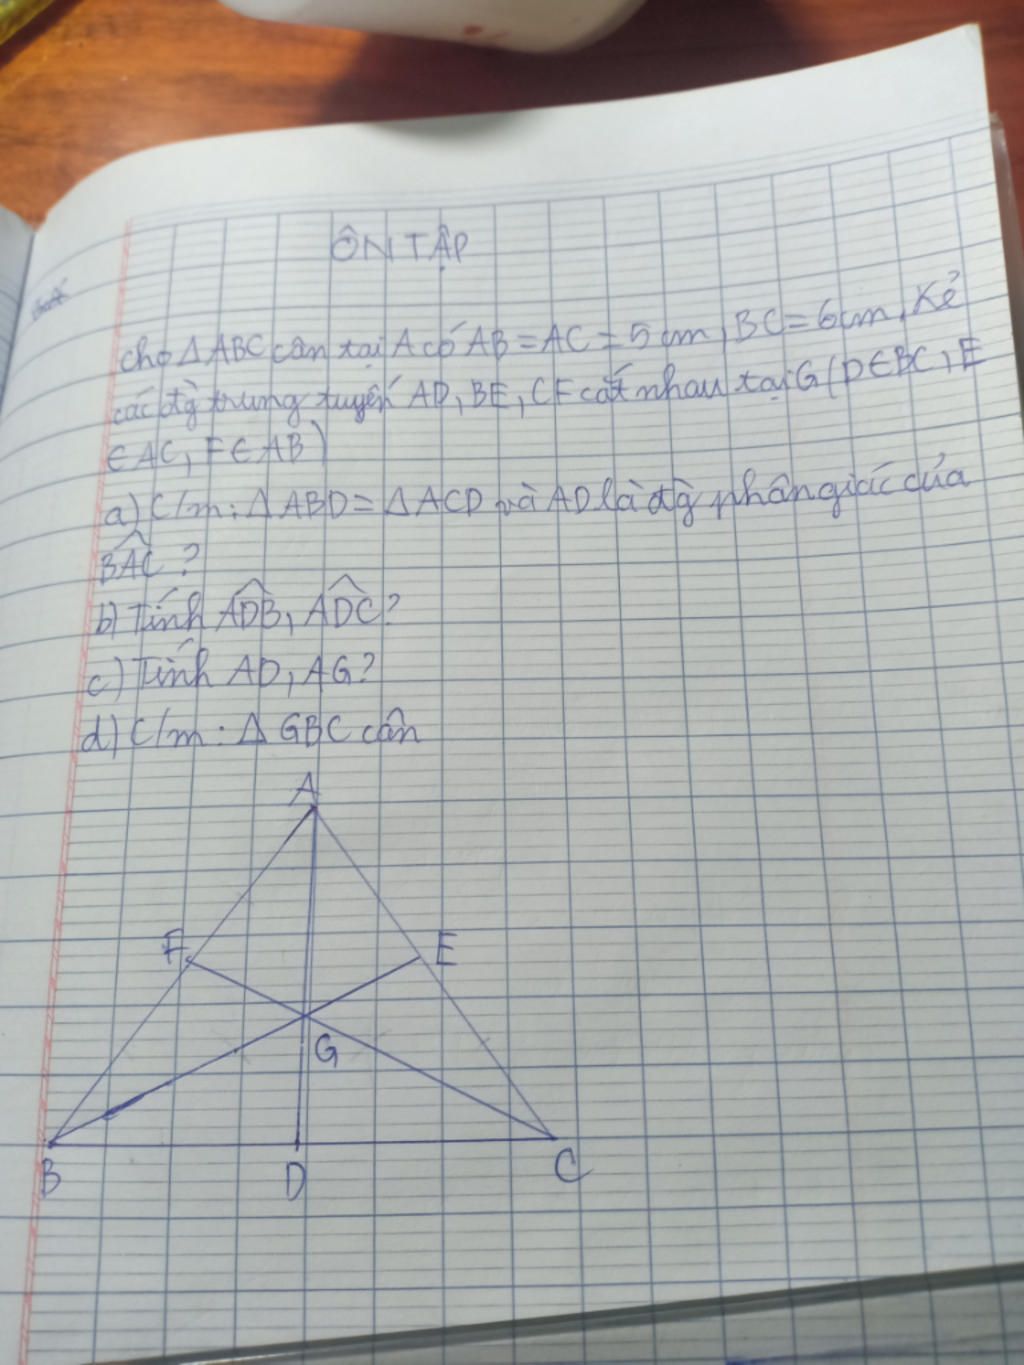 ÔN TẬP
cho △ABC cân tại A có AB = AC = 5cm, BC = 6cm, Kẻ
các đg trung tuyến AD, BE, CF cắt nhau tại G (D∈BC, E
∈ AC, F∈ AB)
a) C/m: △ ABD = △ ACD và AD là đg phân giác của
BAC ?
b) Tính ADB, ADC?
c) Tính AD, AG?
d) C/m: △ GBC cân
A
F E
G
B D C